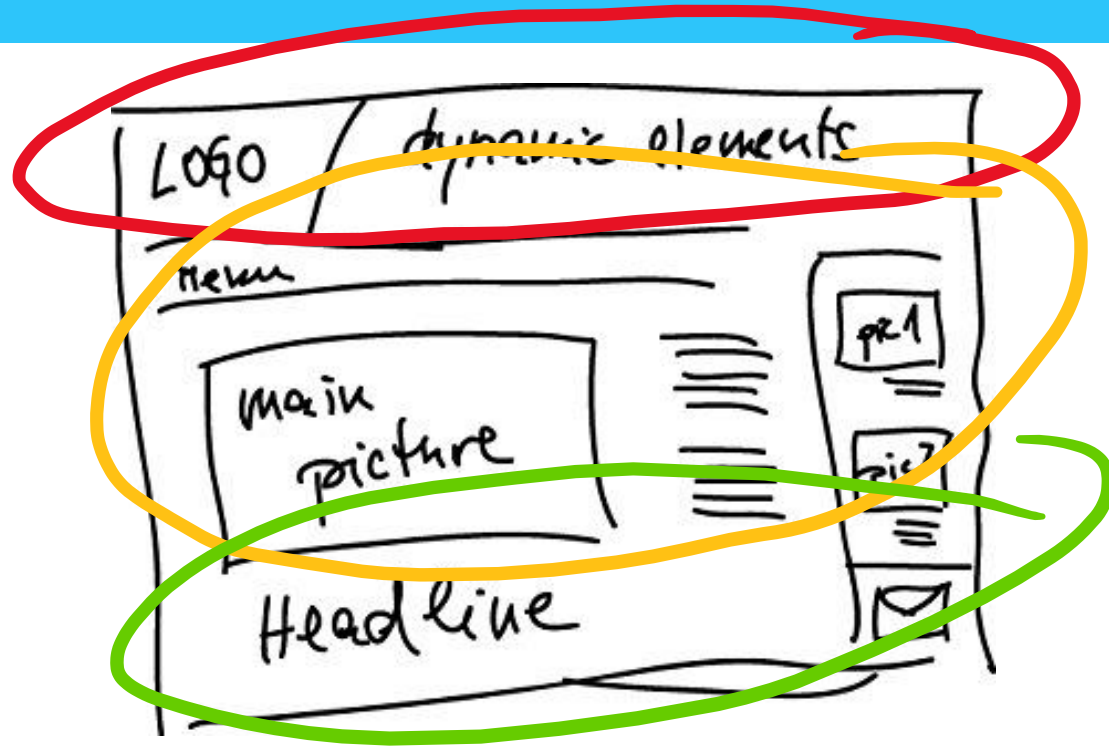 LOGO
dynamic elements
Menu
main
picture
pic1
pic2
Headline